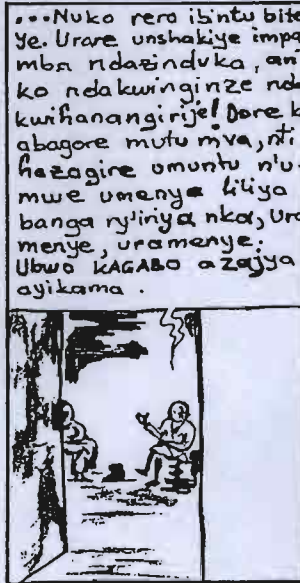 ...Nuko rero ibintu bite
ye. Urare unshakiye impa
mba ndazinduka, an
ko ndakwinginze nda
kwihanangirije! Dore k
abagore mutu mva, nti
hazagire umuntu n'u
mwe umenye iliya
banga ry'iriya nka, Ura
menye, uramenye.
Ubwo KAGABO azajya
ayikama.